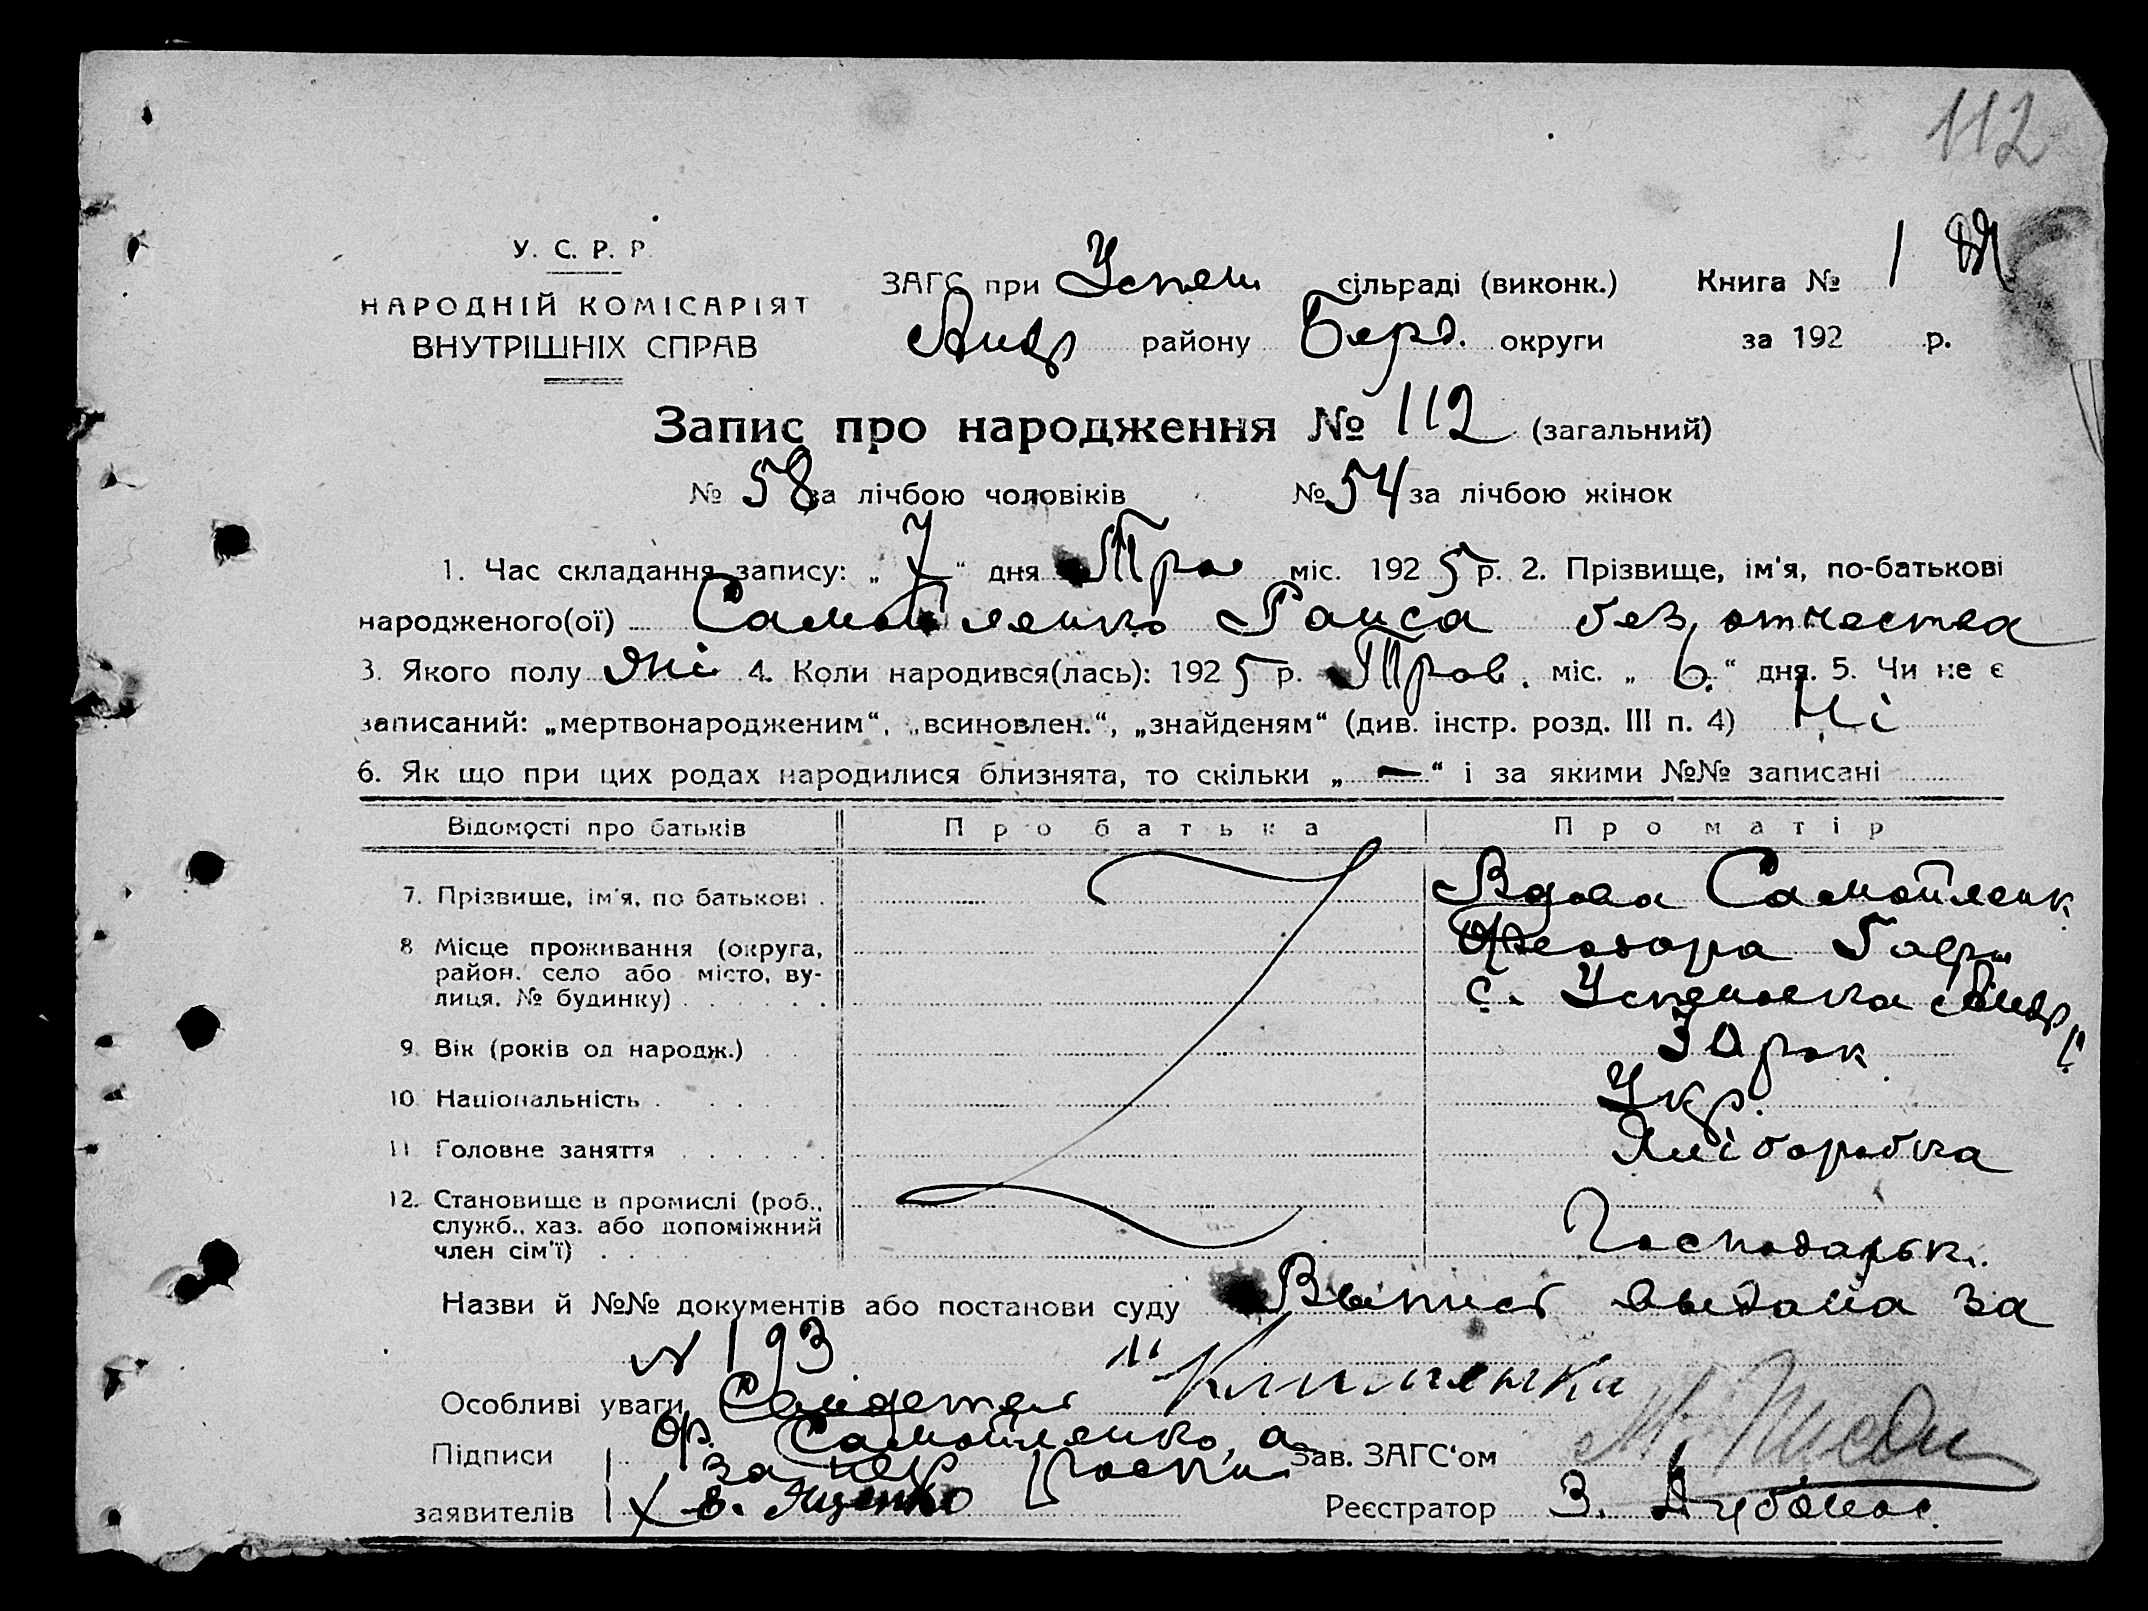 112
У. С. Р. Р.
НАРОДНІЙ КОМІСАРІЯТ
ВНУТРІШНІХ СПРАВ
ЗАГС при Успен сільраді (виконк.) Книга № 1
Андр району Берд. округи за 192 р.
Запис про народження № 112 (загальний)
№ 58 за лічбою чоловіків № 54 за лічбою жінок
1. Час складання запису: „ 7 “ дня Тра міс. 1925 р. 2. Прізвище, ім'я, по-батькові
народженого(ої) Самойленко Раиса без отчества
3. Якого полу жі 4. Коли народився(лась): 1925 р. Трав. міс. „ 6. “ дня. 5. Чи не є
записаний: „мертвонародженим“, „всиновлен.“, „знайденям“ (див. інстр. розд. III п. 4) Ні
6. Як що при цих родах народилися близнята, то скільки „ — “ і за якими №№ записані
Відомості про батьків Про батька Про матір
7. Прізвище, ім'я, по батькові . Вдова Самойленк
Феодора Гавр
8 Місце проживання (округа,
район, село або місто, ву-
лиця, № будинку) . . . . . . с. Успеновка Андр
9. Вік (років од народж.) . . 30 рок
10. Національність . . . . Укр.
11 Головне заняття . . . . . . Хліборобка
12. Становище в промислі (роб.,
служб., хаз. або допоміжний
член сім'ї) . . Господарьк.
Назви й №№ документів або постанови суду Выпись выдана за
№ 193
Особливі уваги
Підписи Ф. Самойленко, а Зав. ЗАГС'ом
за нег
заявителів В. Яценко Реєстратор З.